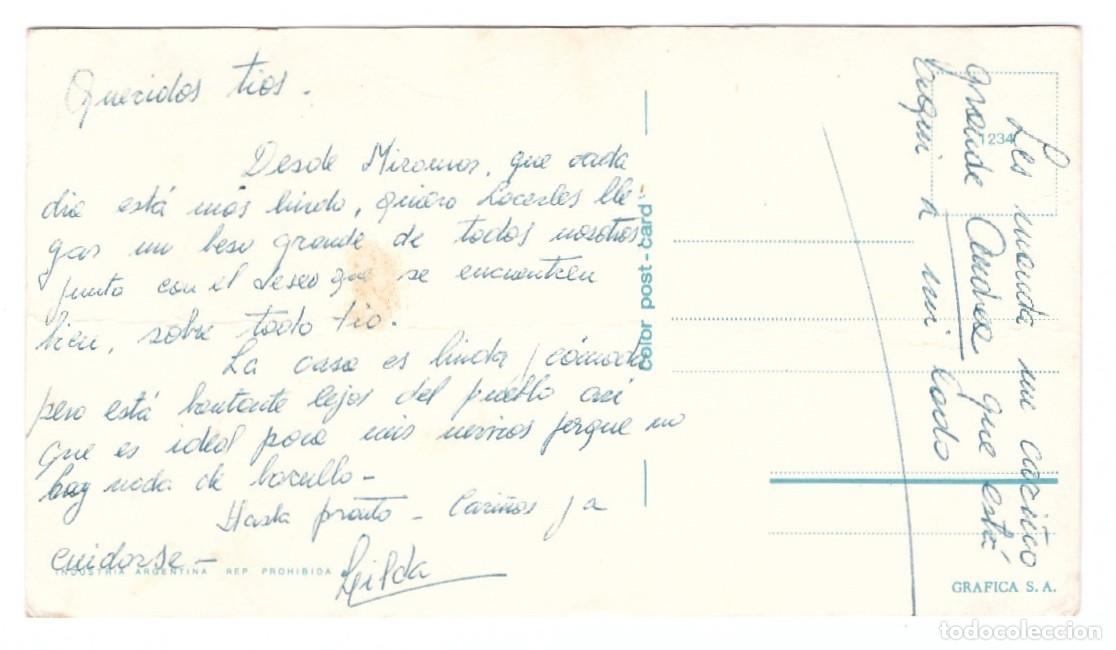 Queridos tios.
Desde Miramar, que cada
dia está más lindo, quiero hacerles lle
gar un beso grande de todos nosotros
junto con el deseo que se encuentren
bien, sobre todo tio.
La casa es linda y cómoda
pero está bastante lejos del pueblo asi
que es ideal para mis nervios porque no
hay nada de barullo-
Hasta pronto - Cariños y a
cuidarse-
Gilda
INDUSTRIA ARGENTINA REP PROHIBIDA
color post-card
1234
Les manda un cariño
grande Andrea que está
aqui a mi lado
GRAFICA S. A.
todocoleccion